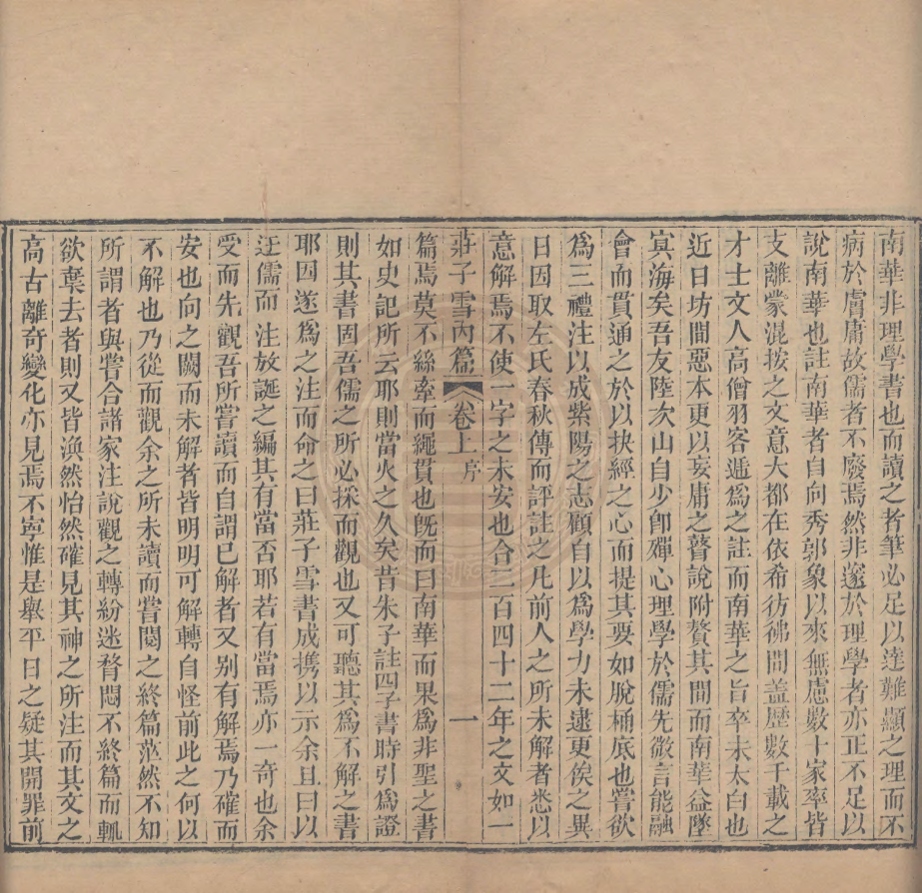 南華非理學書也而讀之者筆必足以達難顯之理而不
病於膚庸故儒者不廢焉然非邃於理學者亦正不足以
說南華也註南華者自向秀郭象以來無慮數十家率皆
支離蒙混按之文意大都在依希彷彿間蓋歷數千載之
才士文人高僧羽客遞為之註而南華之旨卒未太白也
近日坊間惡本更以妄庸之瞽說附贅其間而南華益墜
冥海矣吾友陸次山自少卽殫心理學於儒先微言能融
會而貫通之於以抉經之心而提其要如脫桶底也嘗欲
為三禮注以成紫陽之志顧自以為學力未逮更俟之異
日因取左氏春秋傳而評註之凡前人之所未解者悉以
意解焉不使一字之未安也合二百四十二年之文如一
莊子雪內篇 卷上 序 一
篇焉莫不絲牽而繩貫也旣而曰南華而果為非聖之書
如史記所云耶則當火之久矣昔朱子註四子書時引為證
則其書固吾儒之所必採而觀也又可聽其為不解之書
耶因遂為之注而命之曰莊子雪書成携以示余且曰以
迂儒而注放誕之編其有當否耶若有當焉亦一奇也余
受而先觀吾所嘗讀而自謂已解者又別有解焉乃確而
安也向之闕而未解者皆明明可解轉自怪前此之何以
不解也乃從而觀余之所未讀而嘗閱之終篇茫然不知
所謂者與嘗合諸家注說觀之轉紛迷瞀悶不終篇而輒
欲棄去者則又皆渙然怡然確見其神之所注而其文之
高古離奇變化亦見焉不寧惟是舉平日之疑其開罪前